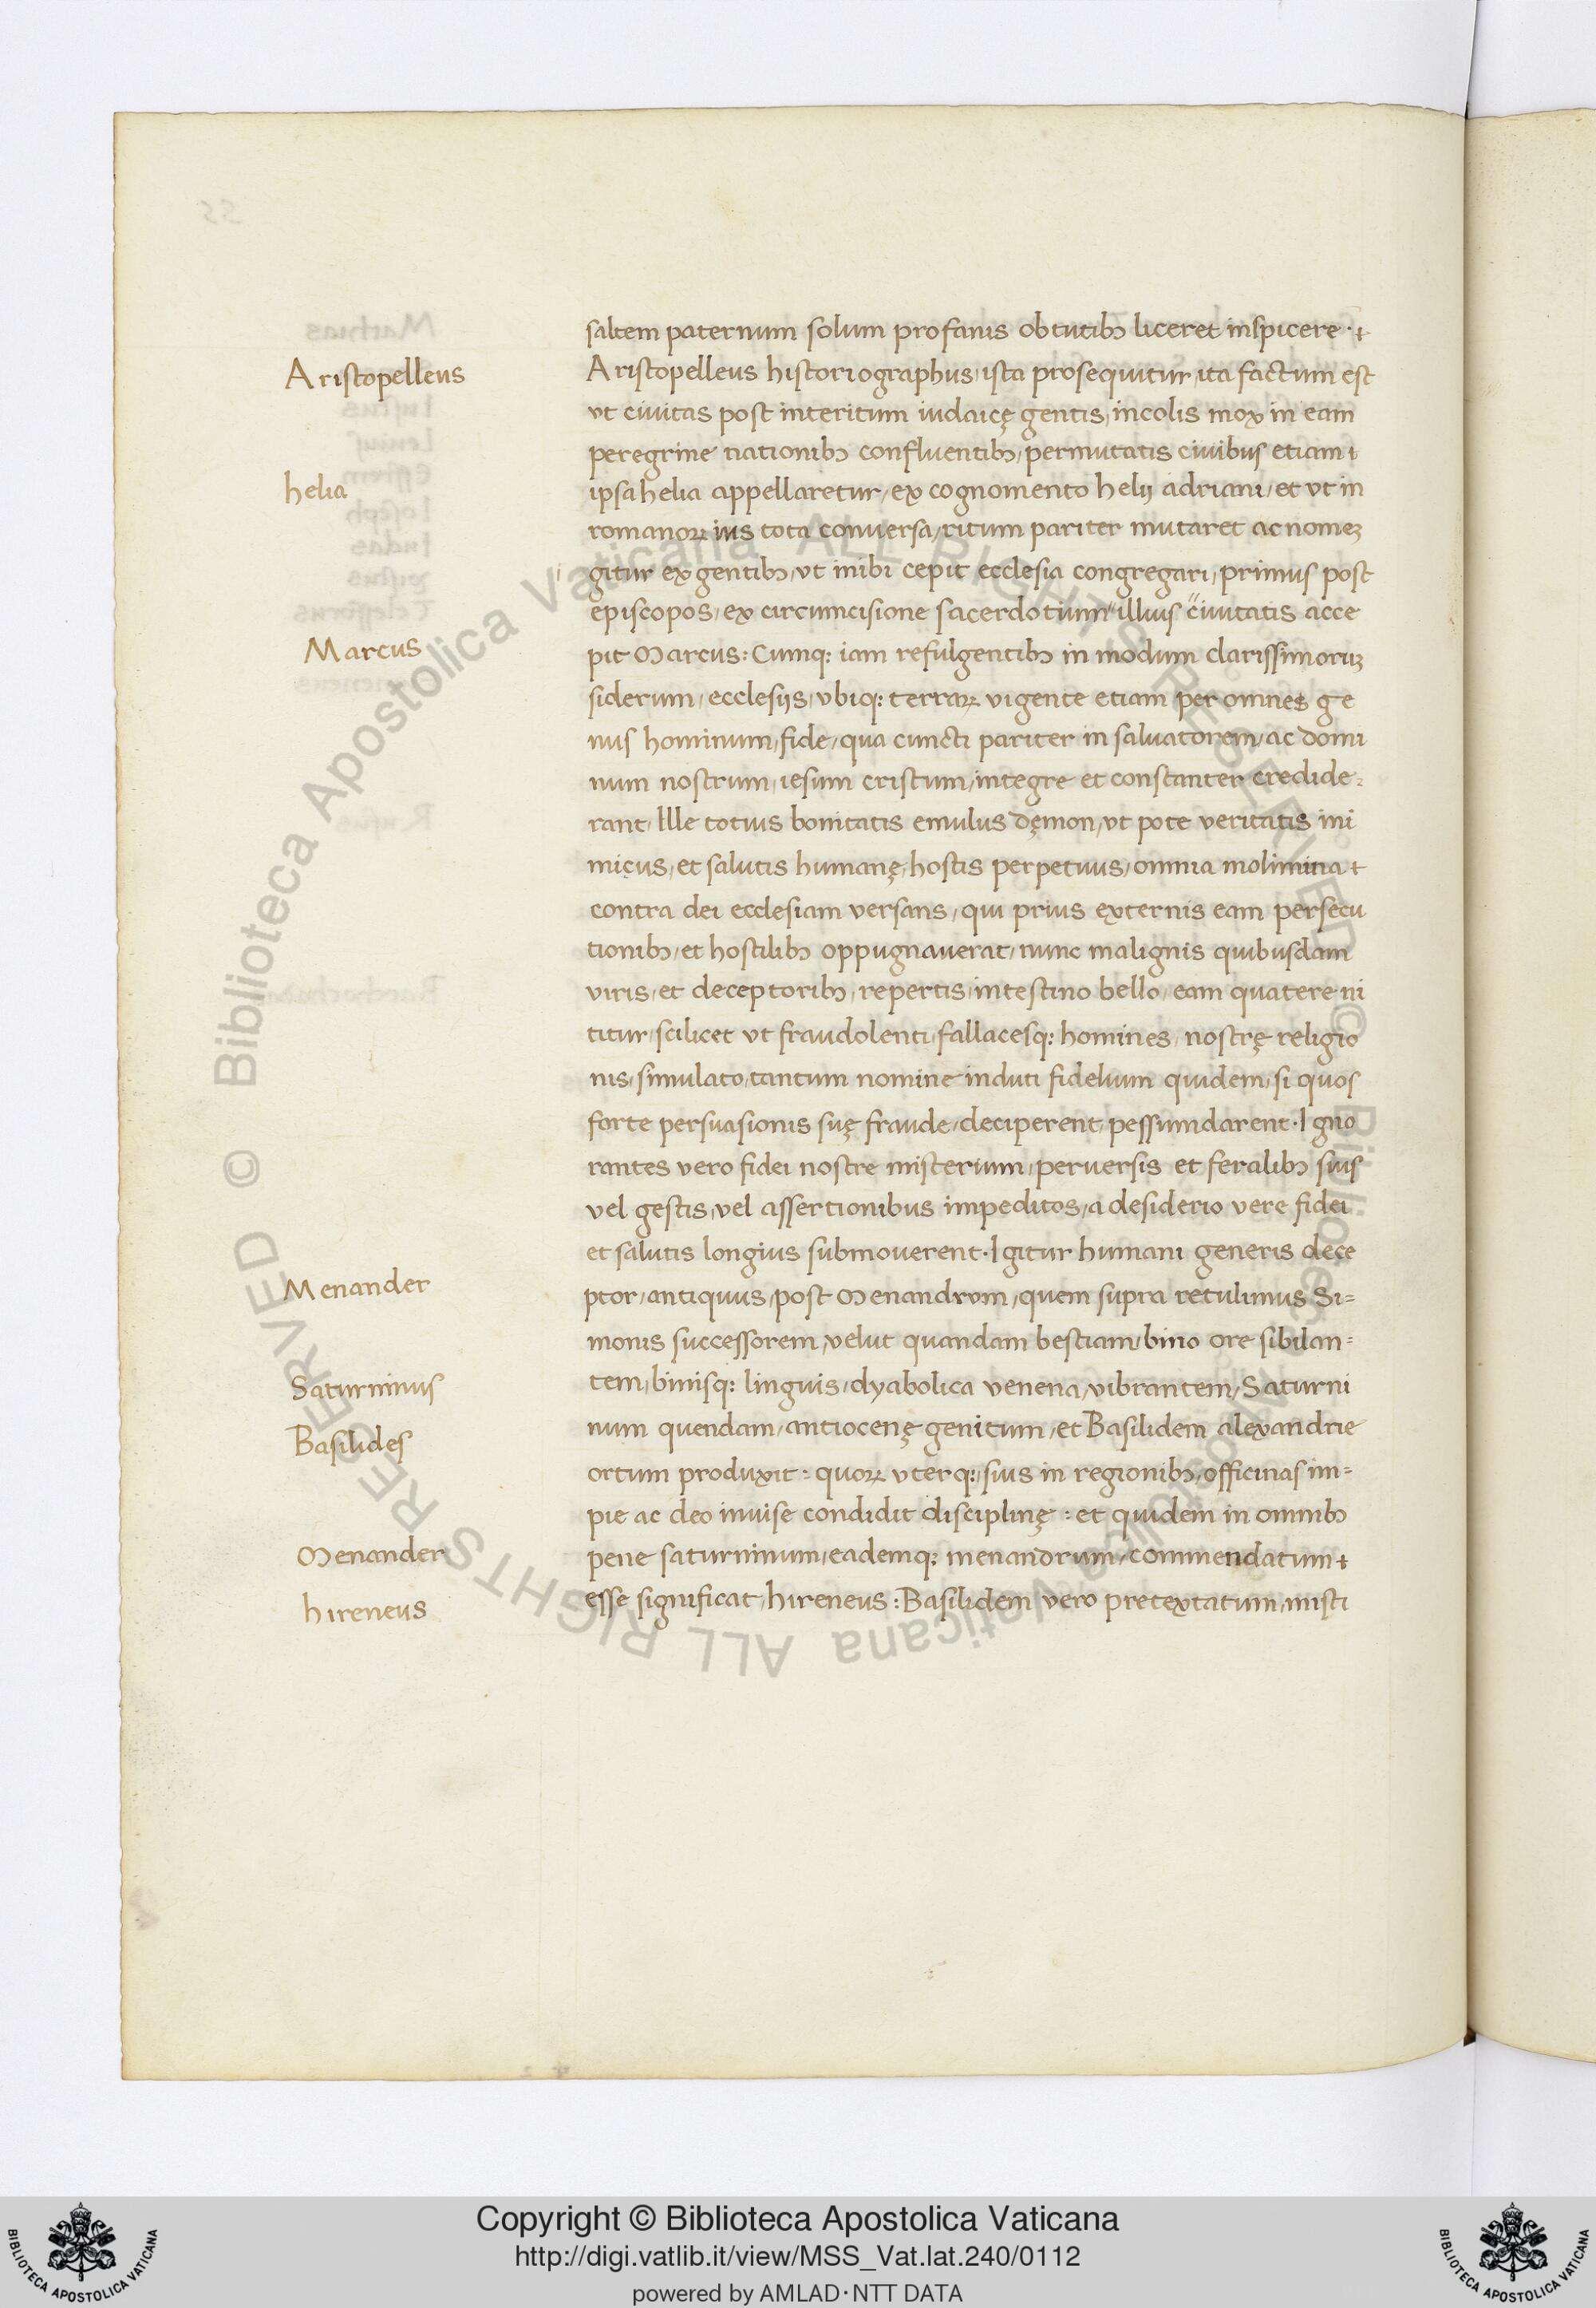 saltem paternum solum profanis obtutibꝫ liceret inspicere ·
Aristopelleus
Aristopelleus historiographus, ista prosequitur, ita factum est
vt ciuitas post interitum iudaicę gentis, incolis mox in eam
peregrine nationibꝫ confluentibꝫ, permutatis ciuibus etiam
helia
ipsa helia appellaretur, ex cognomento helij adriani, et vt in
romanoꝝ ius tota conuersa, ritum pariter mutaret ac nomeꝫ
i gitur ex gentibꝫ, vt inibi cepit ecclesia congregari, primus post
episcopos, ex circumcisione sacerdotium "illius "ciuitatis acce
Marcus
pit Marcus: Cumqꝫ iam refulgentibꝫ in modum clarissimoruꝫ
siderum, ecclesijs, vbiqꝫ terraꝝ vigente etiam per omnes ge
nus hominum, fide, qua cuncti pariter in saluatorem, ac domi
num nostrum, iesum cristum, integre et constanter credide-
rant, Ille totius bonitatis emulus dęmon, vt pote veritatis ini
micus, et salutis humanę, hostis perpetuus, omnia molimina
contra dei ecclesiam versans, qui prius externis eam persecu
tionibꝫ, et hostilibꝫ oppugnauerat, nunc malignis quibusdam
viris, et deceptoribꝫ, repertis, intestino bello, eam quatere ni
titur, scilicet vt fraudolenti, fallacesqꝫ homines, nostrę religio
nis, simulato, tantum nomine induti fidelium quidem, si quos
forte persuasionis suę fraude, deciperent, pessumdarent. Igno
rantes vero fidei nostre misterium, peruersis et feralibꝫ suis
vel gestis, vel assertionibus impeditos, a desiderio vere fidei
et salutis longius submouerent. Igitur humani generis dece
Menander
ptor, antiquus, post Menandrum, quem supra retulimus Si=
monis successorem, velut quandam bestiam, bino ore sibilan=
Saturninus
tem, binisqꝫ linguis, dyabolica venena, vibrantem, Saturni
Basilides
num quendam, antiocenę genitum, et Basilidem alexandrie
ortum produxit: quoꝝ vterqꝫ, suis in regionibꝫ, officinas im=
pie ac deo inuise condidit disciplinę: et quidem in omnibꝫ
Menander
pene saturninum, eademqꝫ menandrum, commendatum
hireneus
esse significat, hireneus: Basilidem vero pretextatum, misti
Copyright © Biblioteca Apostolica Vaticana
http://digi.vatlib.it/view/MSS_Vat.lat.240/0112
powered by AMLAD·NTT DATA
© Biblioteca Apostolica Vaticana ALL RIGHTS RESERVED
© Biblioteca Apostolica Vaticana ALL RIGHTS RESERVED
BIBLIOTECA APOSTOLICA VATICANA
BIBLIOTECA APOSTOLICA VATICANA